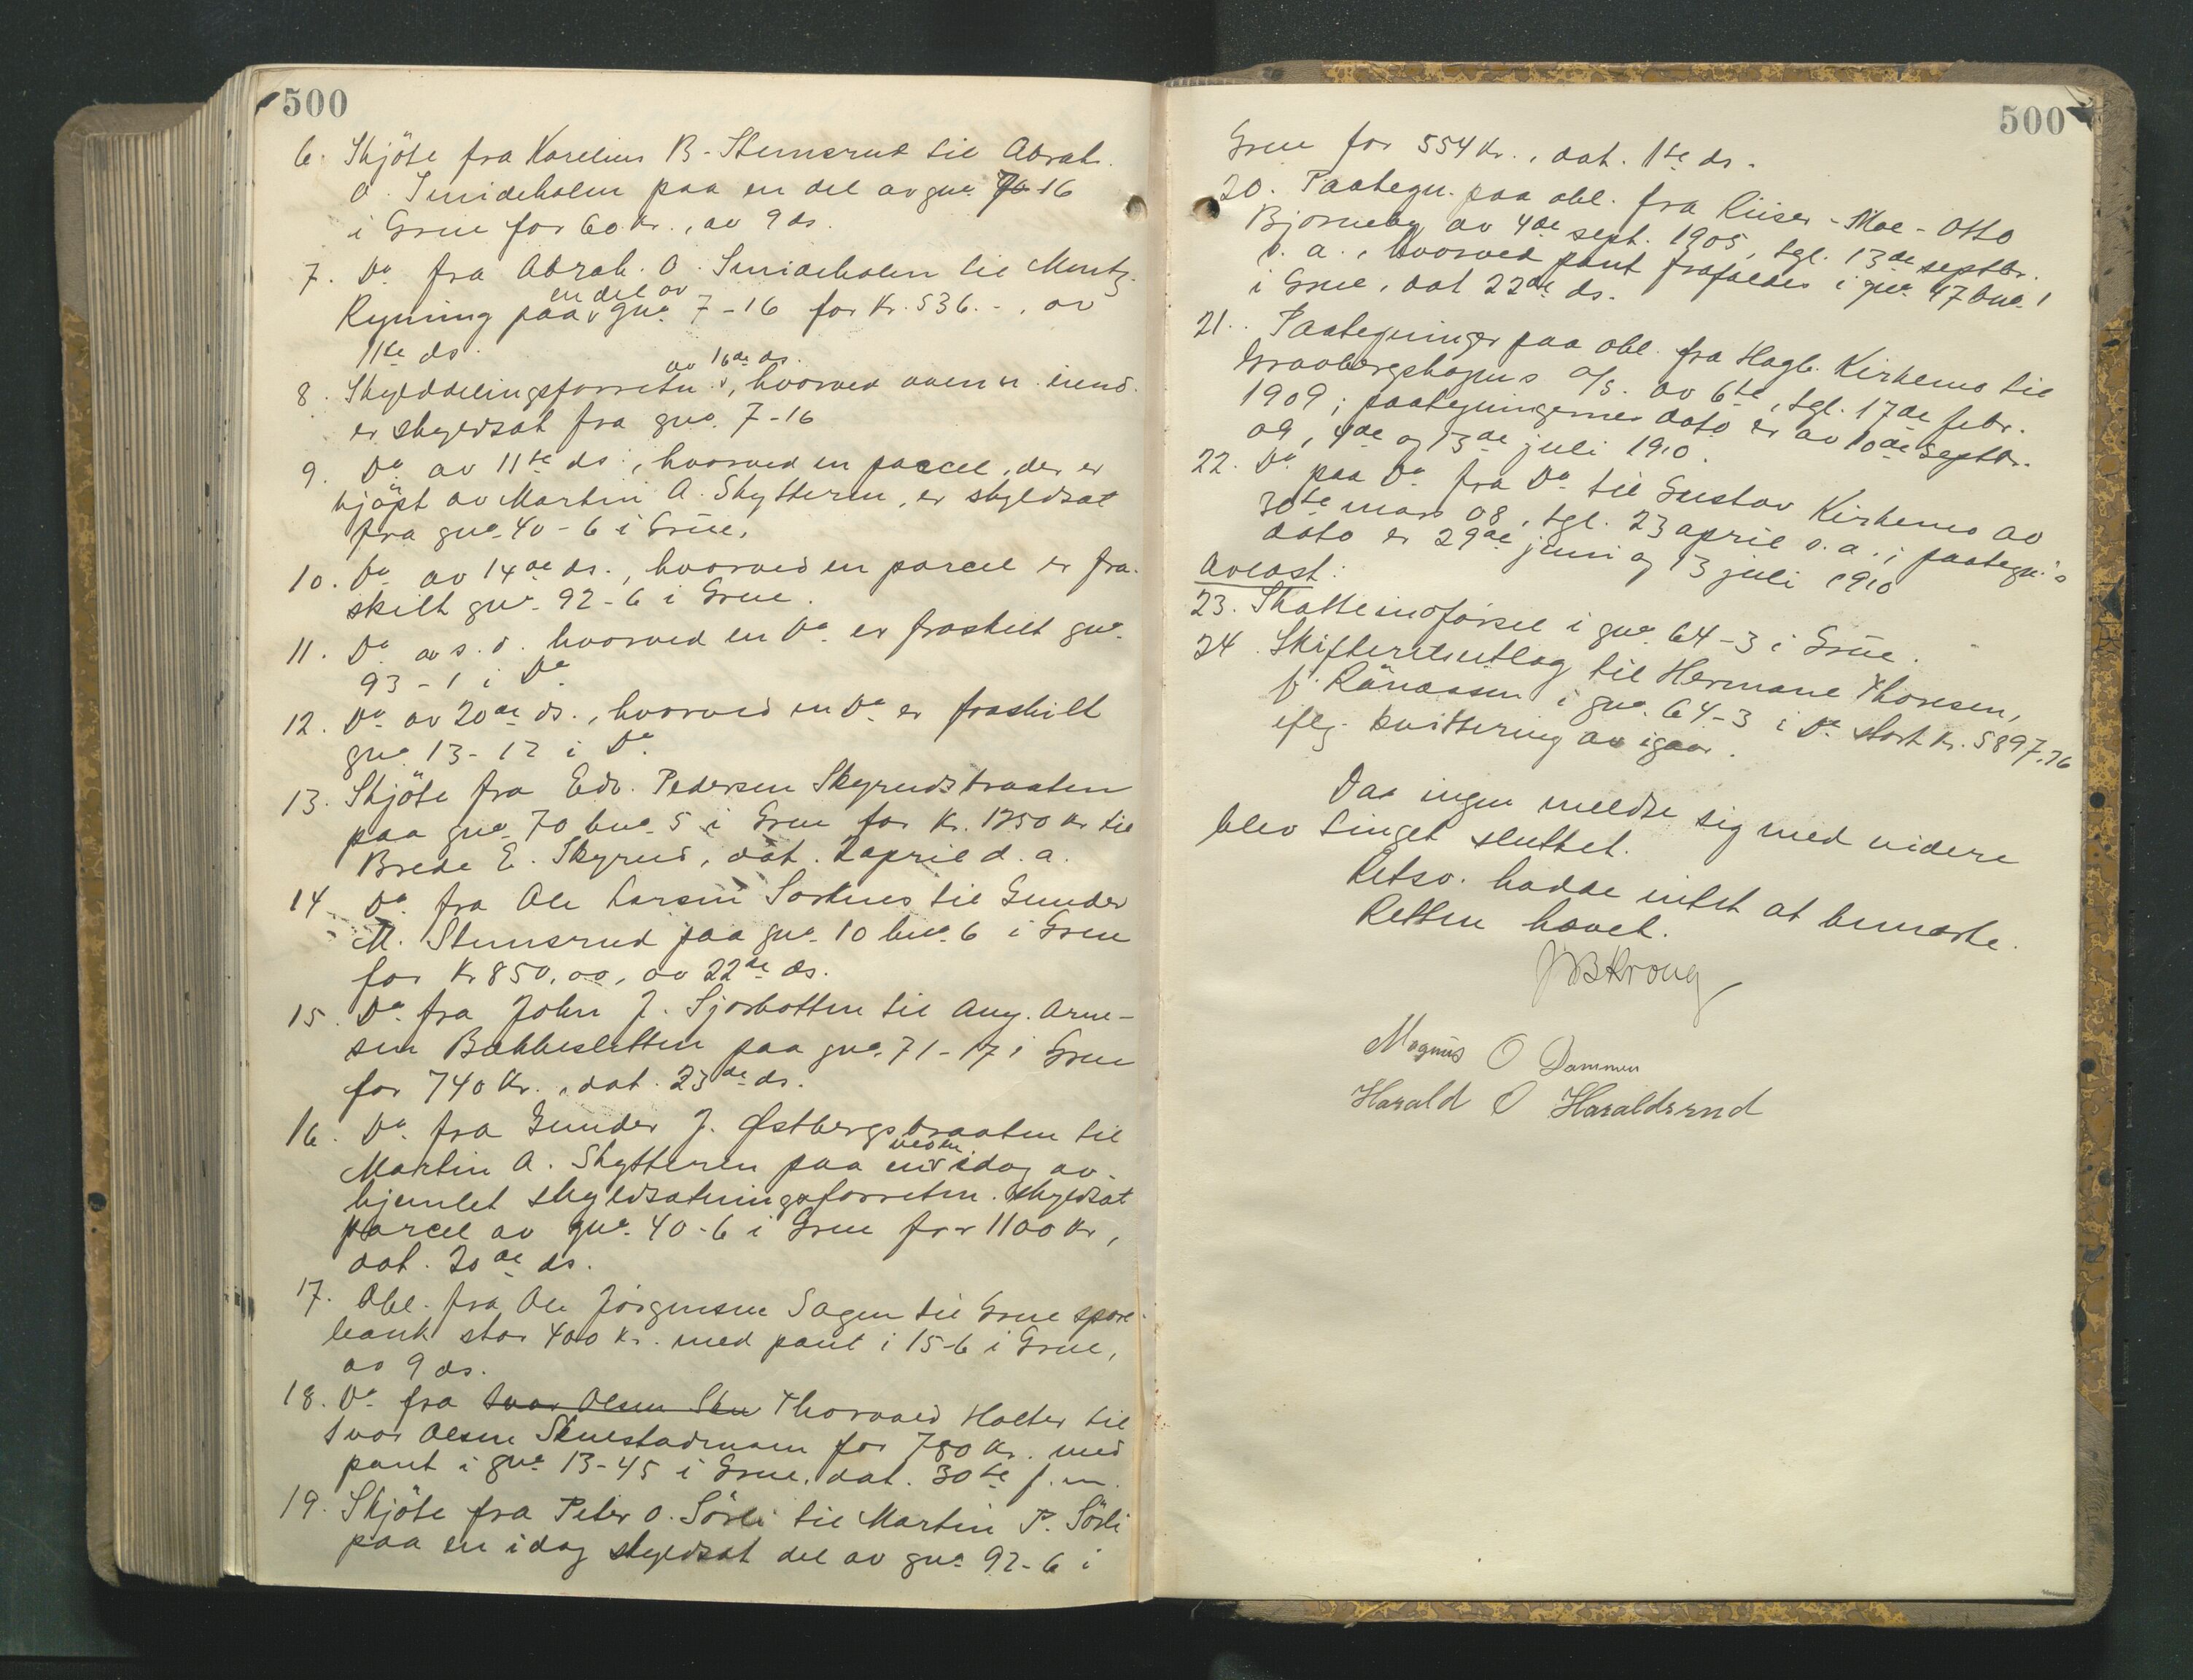 500
6. Skjöte fra Karelius B. Stemsrud til Abrah.
O. Smideholen paa en del av gno. 70 16
i Grue for 60 kr., av 9 ds.
7. Do fra Abrah. O. Smideholen til Mentz
Rynning paa en del av gno. 7-16 for Kr. 536.-, av
11te ds.
8. Skylddelingsforretn. av 16de ds., hvorved oven n. eiend.
er skyldsat fra gno. 7-16
9. Do av 11te ds., hvorved en parcel, der er
kjöpt av Martin A. Skytteren, er skyldsat
fra gno. 40-6 i Grue.
10. Do av 14de ds., hvorved en parcel er fra-
skilt gno. 92-6 i Grue.
11. Do av s. d. hvorved en Do er fraskilt gno.
93-1 i Do
12. Do av 20de ds., hvorved en Do er fraskilt
gno. 13-12 i Do.
13. Skjöte fra Edv. Pedersen Skyrudsbraaten
paa gno. 70 bno. 5 i Grue for Kr. 1250 kr til
Brede E. Skyrud, dat. 2 april d. a.
14. Do. fra Ole Larsen Sorknes til Gunder
M. Stemsrud paa gno. 10 bno. 6 i Grue
for Kr 850,00, av 22de ds.
15. Do. fra John J. Sjorbotten til Aug. Arne-
sen Bakkesletten paa gno. 71-17 i Grue
for 740 Kr., dat. 23de ds.
16. Do. fra Gunder J. Østbergsbraaten til
Martin A. Skytteren paa en ved en idag av-
hjemlet skyldsætningsforretn. skyldsat
parcel av gno. 40-6 i Grue for 1100 Kr,
dat. 20de ds.
17. Obl. fra Ole Jörgensen Sagen til Grue spare-
bank stor 400 kr. med pant i 15-6 i Grue,
av 9 ds.
18. Do fra Ivar Olsen Sku Thorvald Holter til
Ivar Olsen Skuestadmoen for 780 Kr. med
pant i gno. 13-45 i Grue, dat. 30te f. m.
19. Skjöte fra Peter O. Sörli til Martin P. Sörli
paa en idag skyldsat del av gno. 92-6 i
500
Grue for 554 Kr., dat. 1te ds.
20. Paategn. paa obl. fra Riiser-Moe-Otto
Bjørneby av 4de sept. 1905, tgl. 13de septbr.
s. a., hvorved pant frafaldes i gno. 47 bno. 1
i Grue, dat 22de ds.
21. Paategninger paa obl. fra Hagb. Kirkemo til
Gravbergskogens a/s. av 6te, tgl. 17de febr.
1909; paategningernes dato er av 10de septbr.
09, 4de og 13de juli 1910.
22. Do paa Do fra Do til Gustav Kirkemo av
30te mars 08, tgl. 23 april s. a.; paategn.'s
dato er 29de juni og 13 juli 1910
Avlast:
23. Skatteindförsel i gno. 64-3 i Grue.
24. Skifteretsutlag til Hermane Thoresen,
f. Rånaasen i gno. 64-3 i Do stort Kr. 5897.76
iflg. kvittering av igaar.
Daa ingen meldte sig med videre
blev tinget sluttet.
Retsv. hadde intet at bemærke.
Retten hævet.
JB Krong
Magnus O Dammen
Harald O Haraldsrud